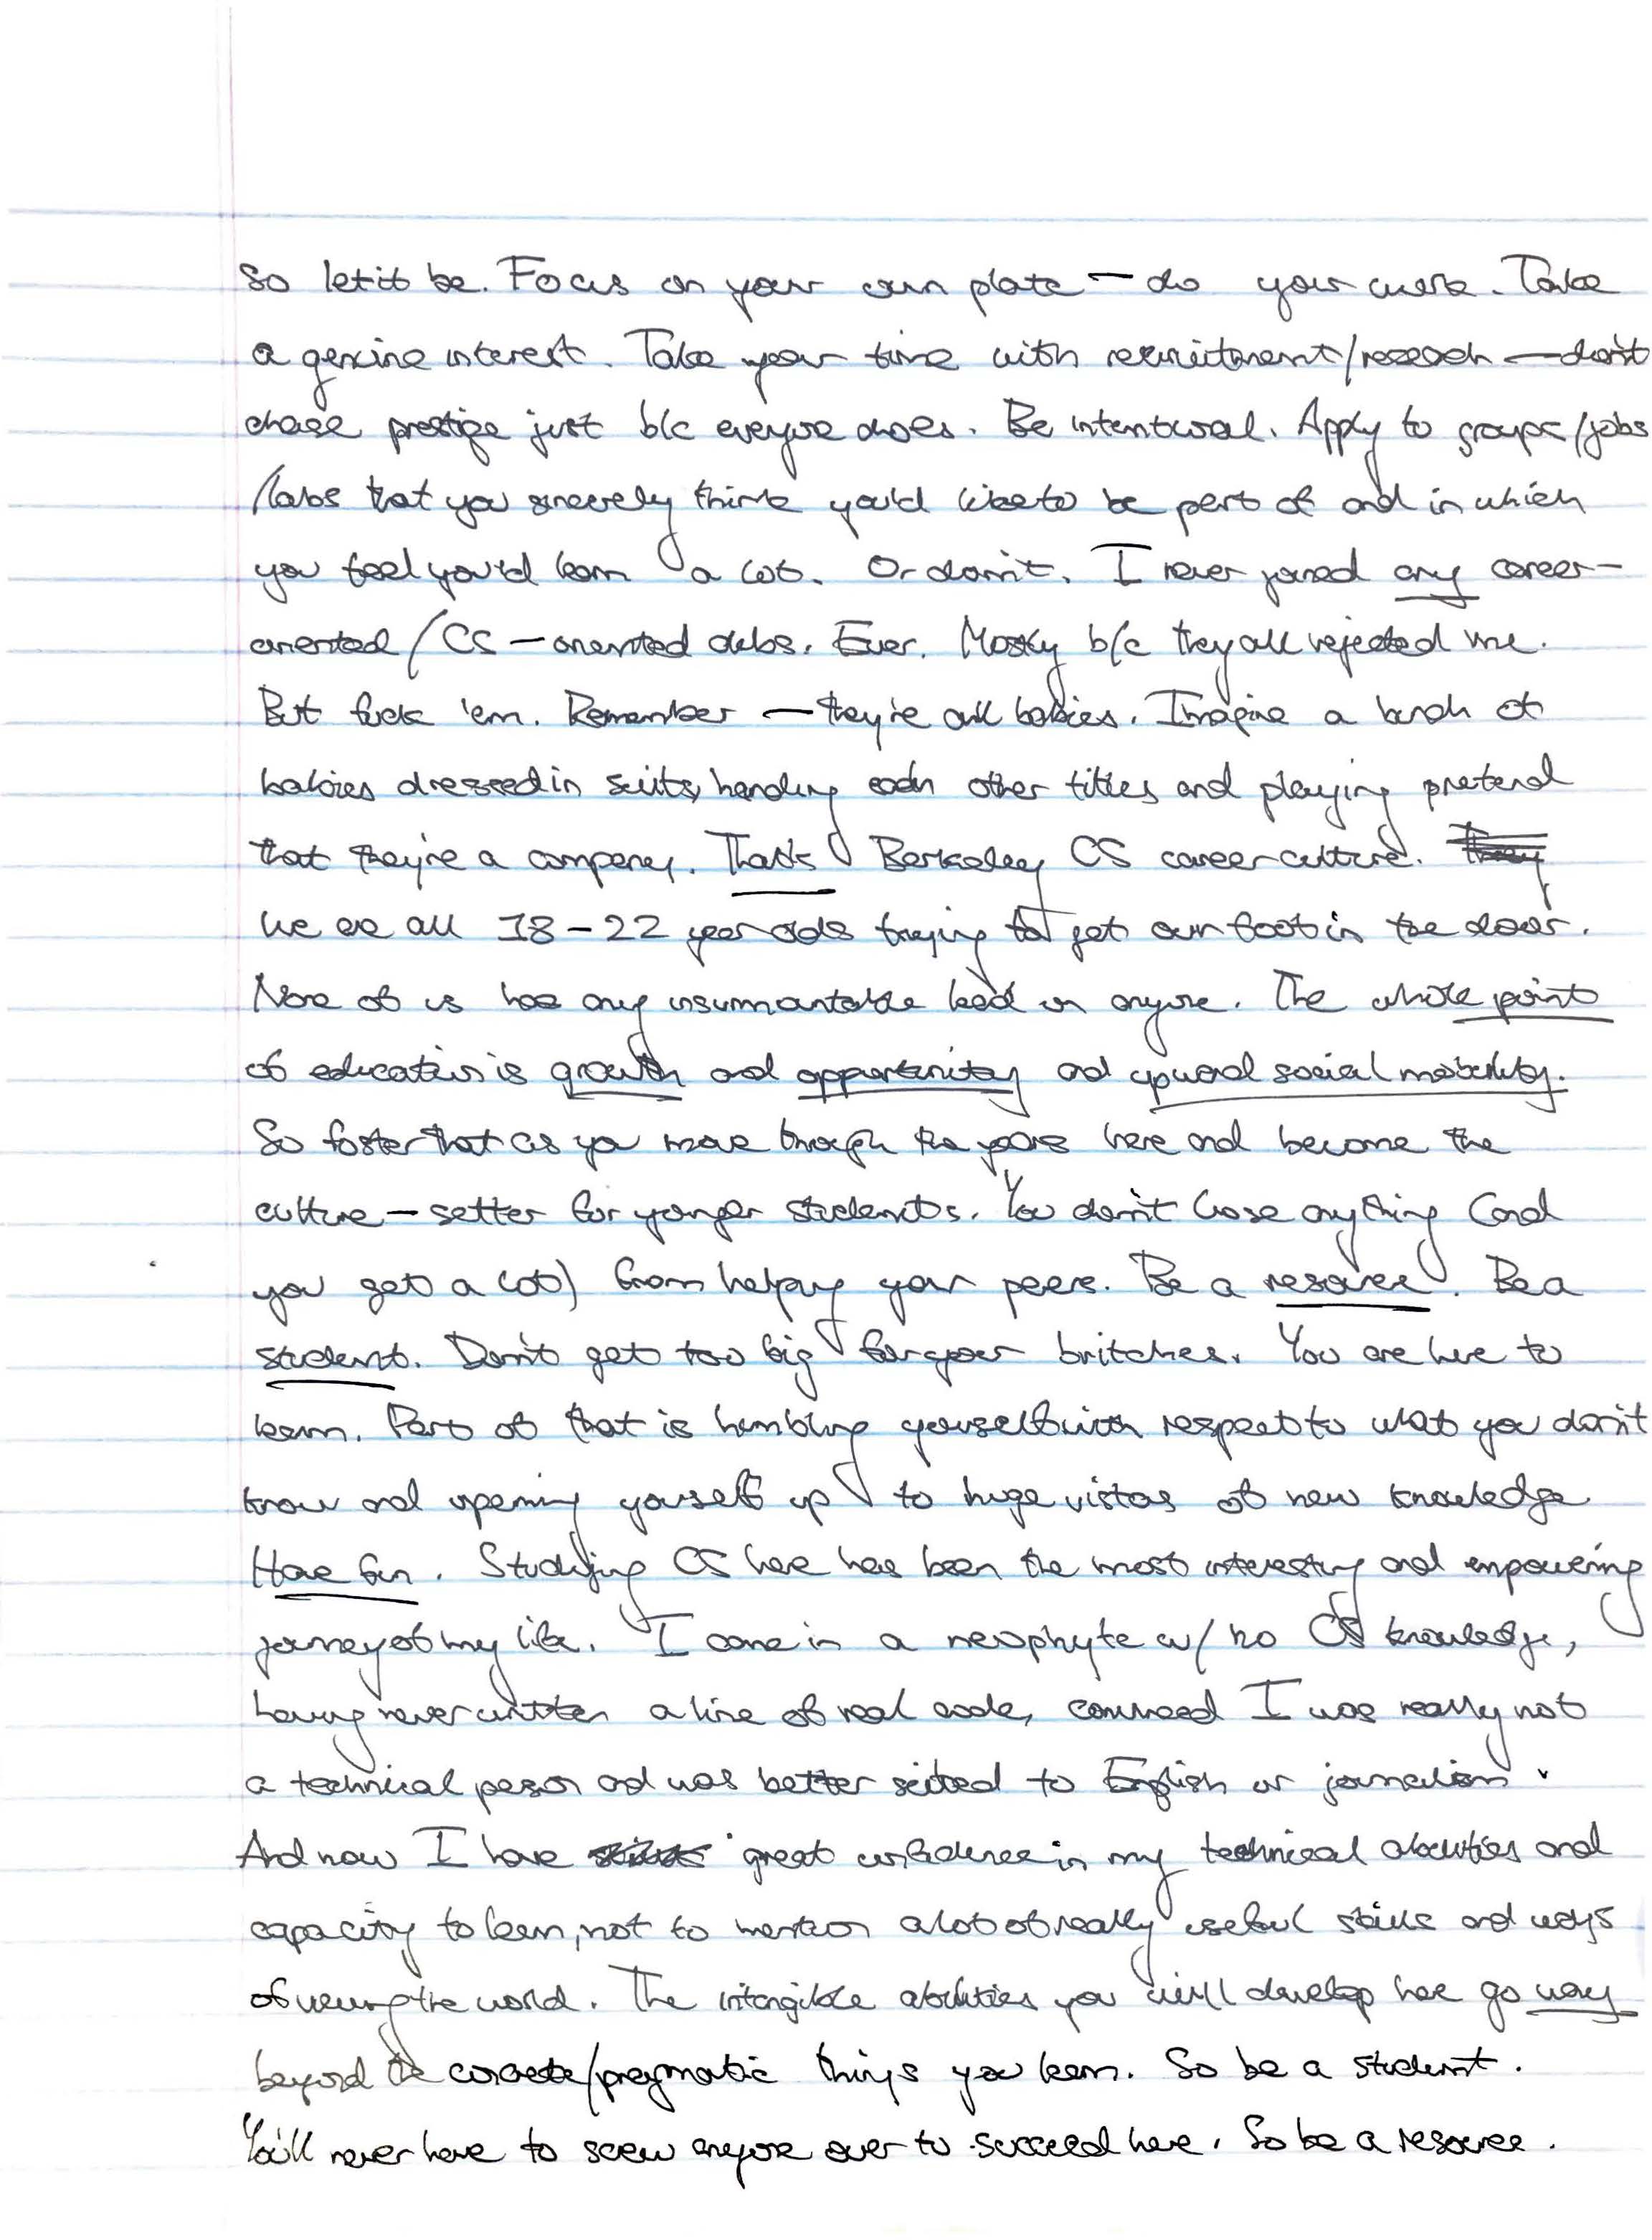 So let it be. Focus on your own plate — do your work. Take
a genuine interest. Take your time with recruitment/research — don't
chase prestige just b/c everyone does. Be intentional. Apply to groups/jobs
/labs that you sincerely think you'd like to be part of and in which
you feel you'd learn a lot. Or don't. I never joined any career-
oriented/CS-oriented clubs. Ever. Mostly b/c they all rejected me.
But fuck 'em. Remember — they're all babies. Imagine a bunch of
babies dressed in suits, handing each other titles and playing pretend
that they're a company. That's Berkeley CS career culture. They
We are all 18-22 year olds trying to get our foot in the door.
None of us has any insurmountable lead on anyone. The whole point
of education is growth and opportunity and upward social mobility.
So foster that as you move through the years here and become the
culture-setter for younger students. You don't lose anything (and
you get a lot) from helping your peers. Be a resource. Be a
student. Don't get too big for your britches. You are here to
learn. Part of that is humbling yourself with respect to what you don't
know and opening yourself up to huge vistas of new knowledge
Have fun. Studying CS here has been the most interesting and empowering
journey of my life. I came in a neophyte w/ no CS knowledge,
having never written a line of real code, convinced I was really not
a technical person and was better suited to English or journalism.
And now I have great confidence in my technical abilities and
capacity to learn, not to mention a lot of really useful skills and ways
of viewing the world. The intangible abilities you will develop here go way
beyond the concrete/pragmatic things you learn. So be a student.
You'll never have to screw anyone over to succeed here. So be a resource.